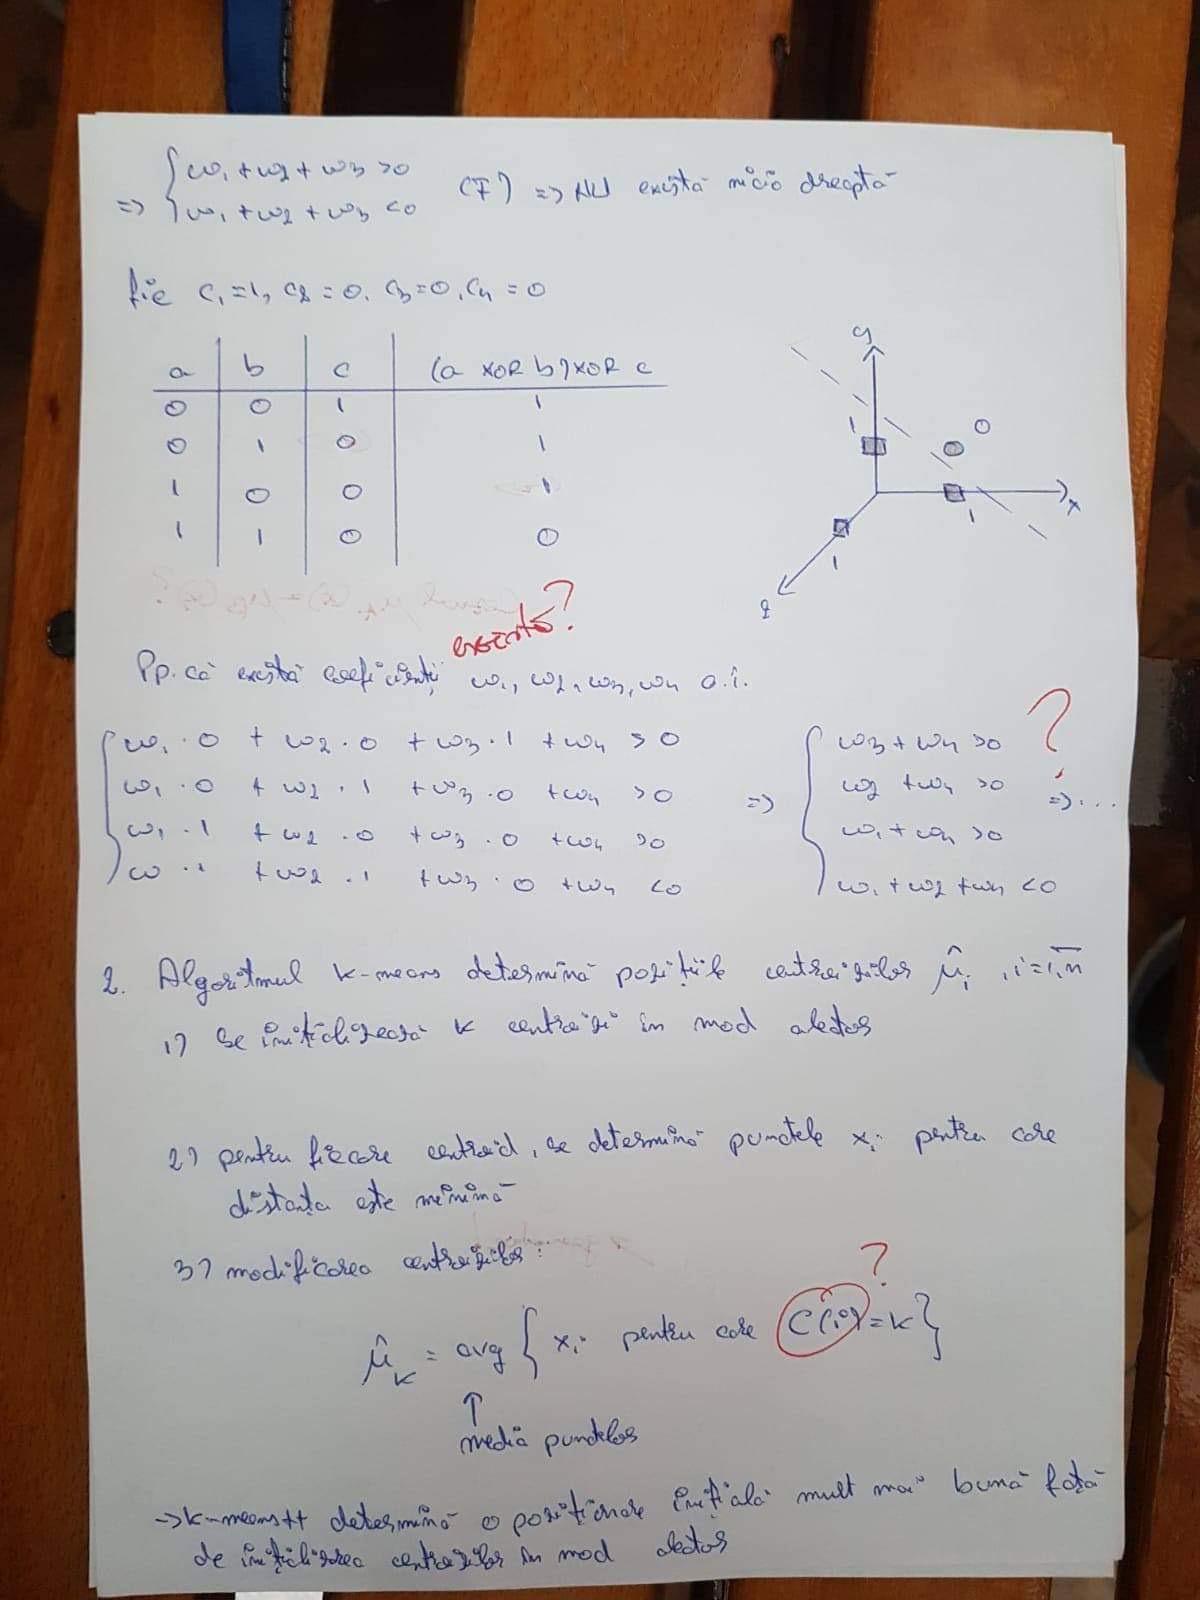 => { w1 + w2 + w3 >0
w1 + w2 + w3 <0 (F) => NU există nicio dreaptă
fie c1=1, c2=0, c3=0, c4=0
a b c (a XOR b) XOR c
0 0 1 1
0 1 0 1
1 0 0 1
1 1 0 0
y
1 0
x
1
1
z
există?
Pp. că există coeficienți w1, w2, w3, w4 a.î.
w1 · 0 + w2 · 0 + w3 · 1 + w4 >0 w3 + w4 >0 ?
w1 · 0 + w2 · 1 + w3 · 0 + w4 >0 => w2 + w4 >0 => ...
w1 · 1 + w2 · 0 + w3 · 0 + w4 >0 w1 + w4 >0
w · 1 + w2 · 1 + w3 · 0 + w4 <0 w1 + w2 + w4 <0
2. Algoritmul k-means determină pozițiile centroizilor μ̂i, i=1,n
1) se inițializează k centroizi în mod aleator
2) pentru fiecare centroid, se determină punctele xi pentru care
distanța este minimă
3) modificarea centroizilor:
?
μ̂k = avg { xi pentru care C(i)=k }
↑
media punctelor
-> k-means++ determină o poziționare inițială mult mai bună față
de inițializarea centroizilor în mod aleator